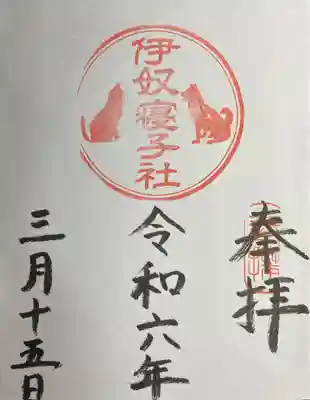 奉拝
伊奴寝子社
令和六年
三月十五日